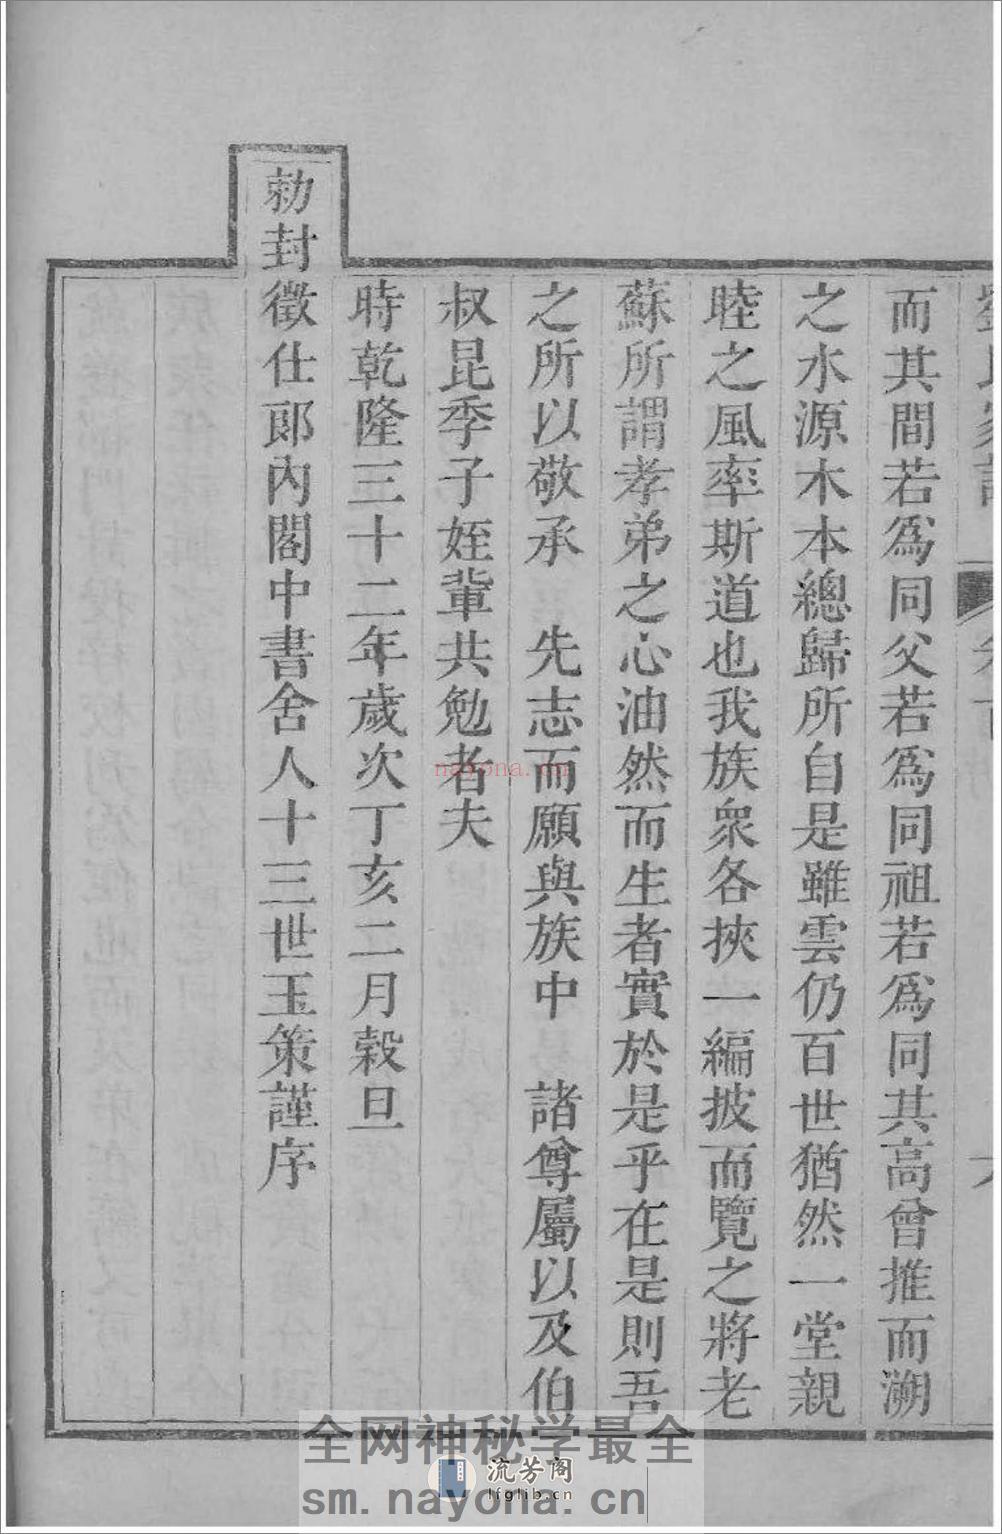 而其間若為同父若為同祖若為同共高曾推而溯
之水源木本總歸所自是雖雲仍百世猶然一堂親
睦之風率斯道也我族眾各挾一編披而覽之將老
蘇所謂孝弟之心油然而生者實於是乎在是則吾
之所以敬承　先志而願與族中　諸尊屬以及伯
叔昆季子姪輩共勉者夫
時乾隆三十二年歲次丁亥二月穀旦
勅封徵仕郎內閣中書舍人十三世玉策謹序
nayona.cn
全网神秘学最全
流芳阁
lfglib.cn
sm.nayona.cn